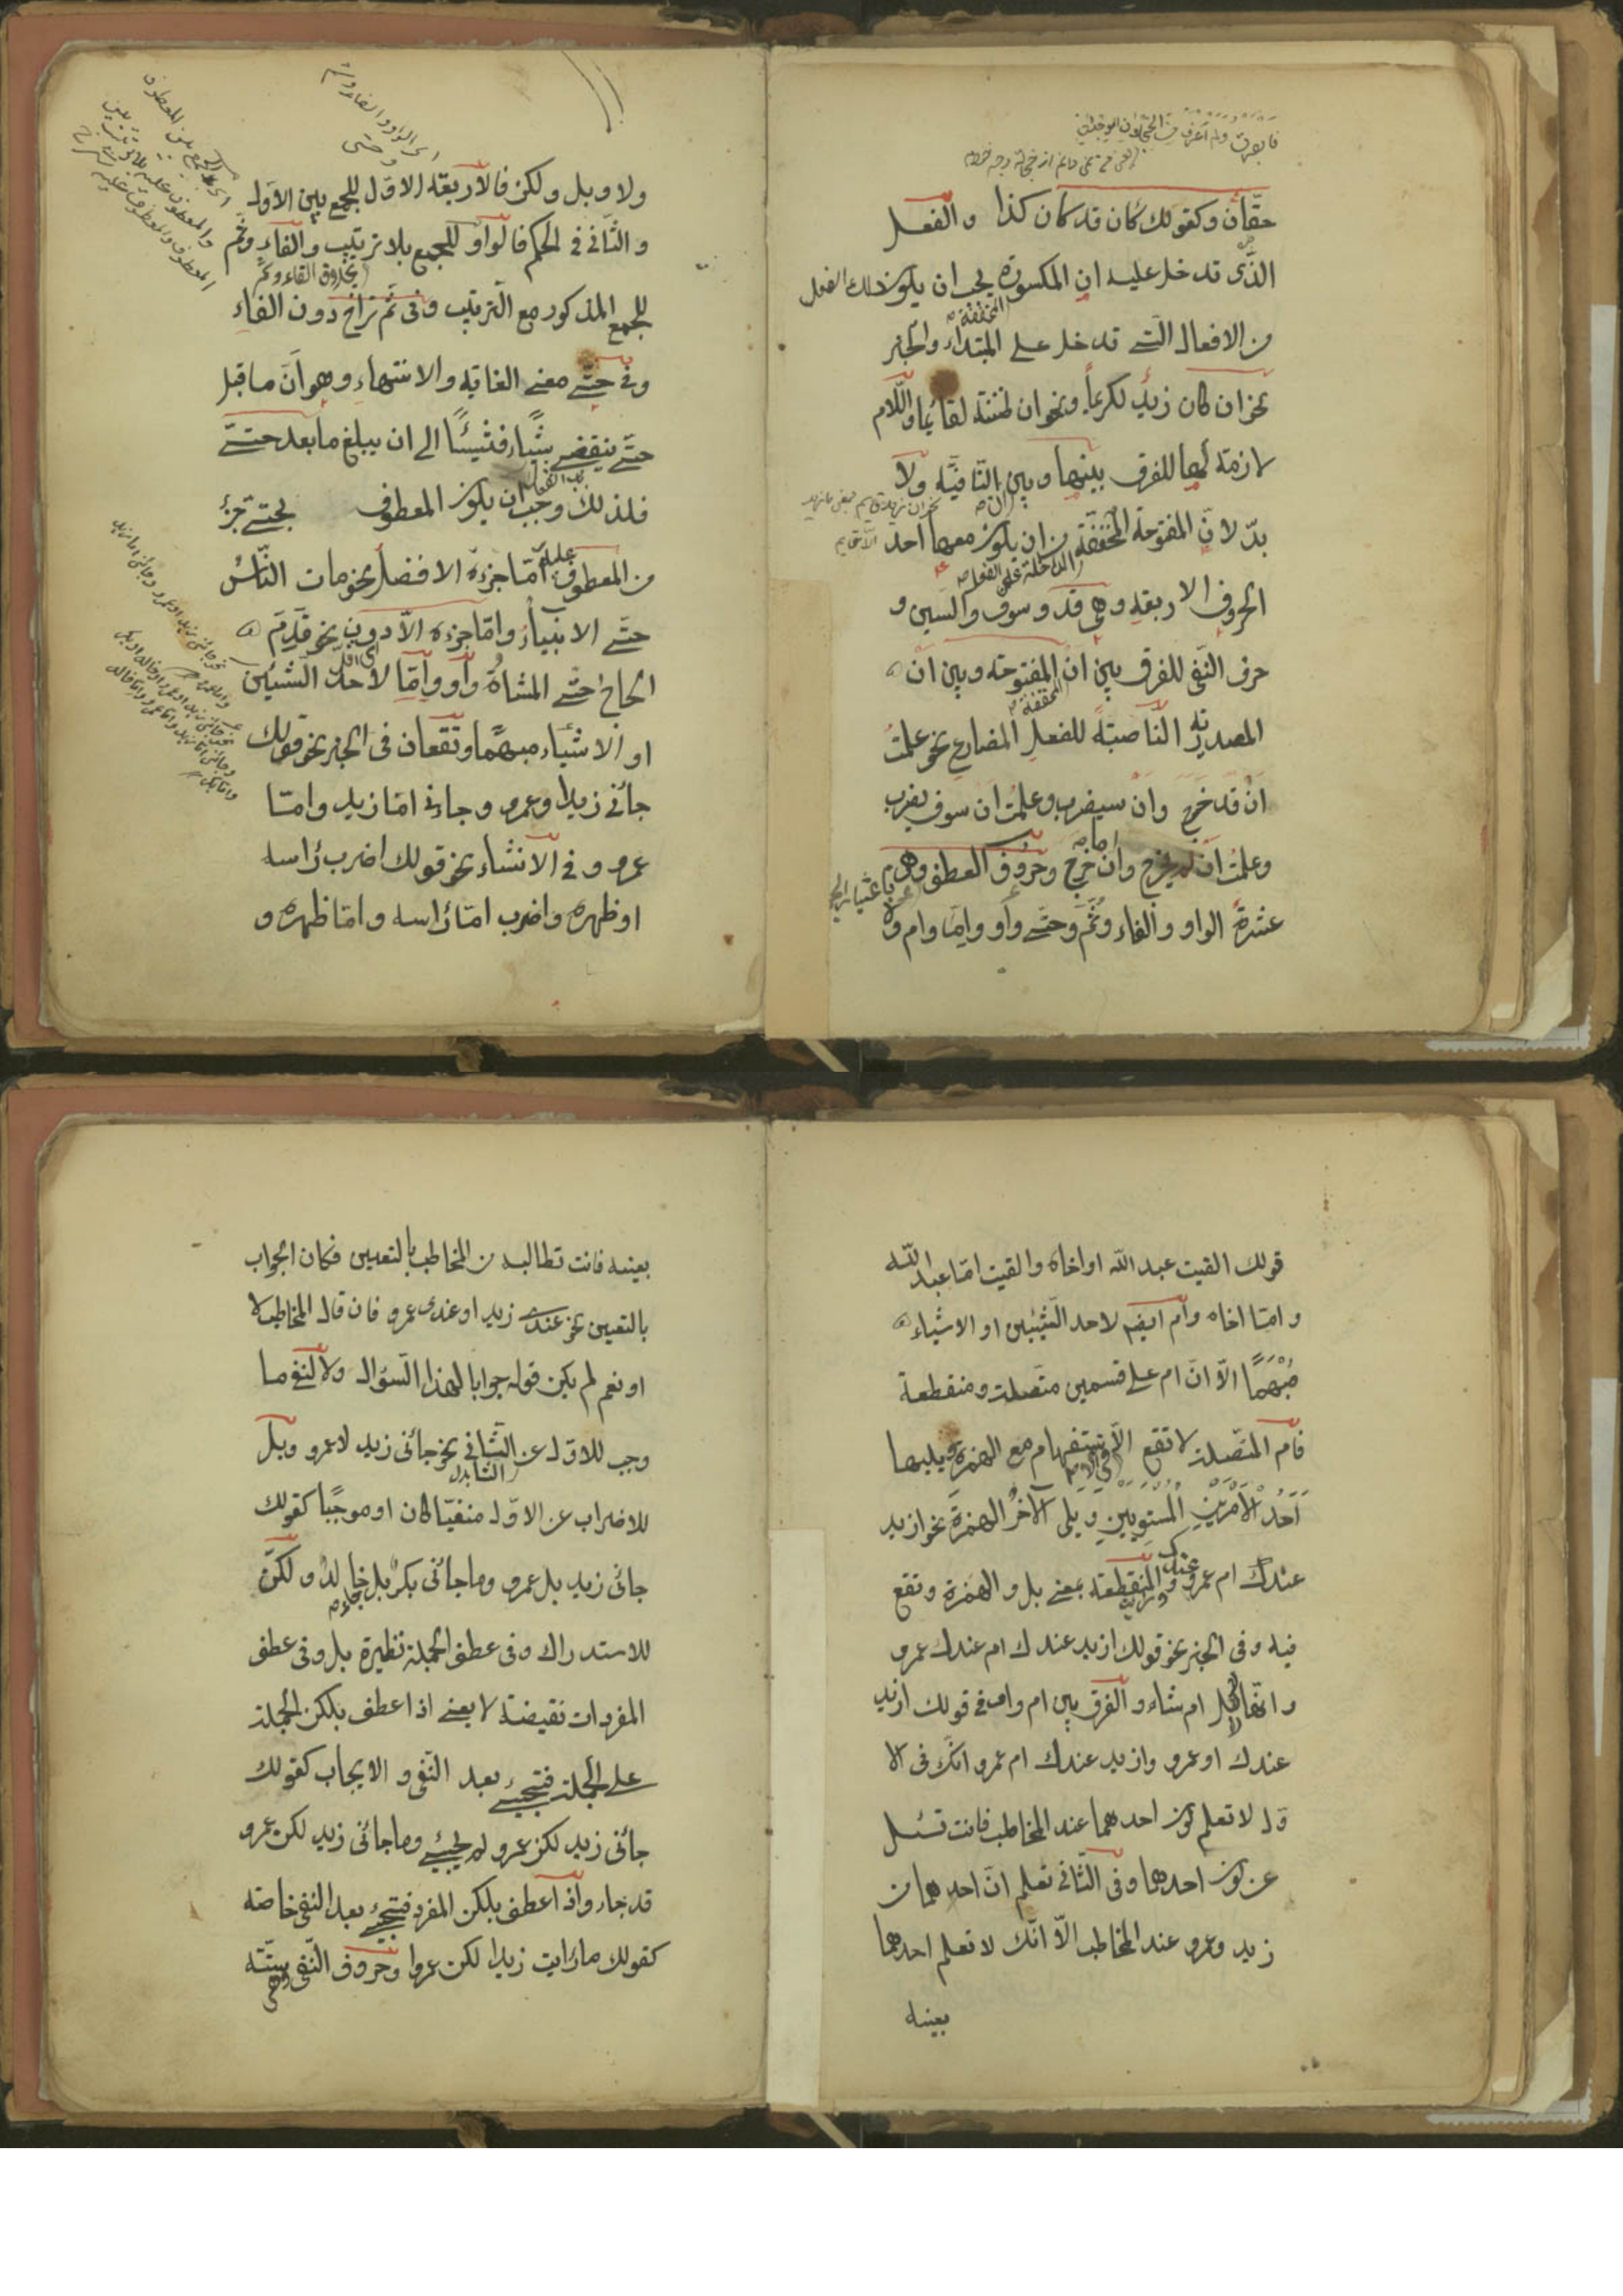 حقّان وكقولك كان قد كان كذا والفعل
الذّى تدخل عليه ان المكسورة يجب ان يكون ذلك الفعل
المخففة
من الافعال الّتى تدخل على المبتداء والخبر
نحو ان كان زيد لكريماً ونحو ان ظننته لقائما واللّام
لازمة لها للفرق بينها وبين النّافيّة ولا
بدّ لانّ المفتوحة المخفّفة من ان يكون معها احد
الداخلة على الفعل
الحروف الاربعة وهى قد وسوف والسين و
حرف النّفى للفرق بين ان المفتوحة وبين ان
المخففة
المصدريّة النّاصبة للفعل المضارع نحو علمتُ
ان قد خرج وان سيضرب وعلمت ان سوف يضرب
وعلمت ان لم يخرج وان ما خرج وحروف العطف وهى
عشرة الواو والفاء وثمّ وحتّى وأو وامّا وام ولا
ولا وبل ولكن فالاربعة الاوّل للجمع بين الاوّل
والثّانى فى الحكم فالواو للجمع بلا ترتيب والفاء وثمّ
بخلاف الفاء وثم
للجمع المذكور مع التّرتيب وفى ثمّ تراخ دون الفاء
وفى حتّى معنى الغاية والانتهاء وهو انّ ما قبل
حتّى ينقضى شيئاً فشيئًا الى ان يبلغ ما بعد حتّى
فلذلك وجب ان يكون المعطوف بحتّى جزءُ
من المعطوف عليه امّا جزءه الافضل نحو مات النّاسُ
حتّى الانبياءُ وامّا جزءه الادون نحو قَدِمَ
الحاجّ حتّى المشاةُ وأو وامّا لاحد الشيئين
او الاشياء مبهمًا وتقعان فى الخبر نحو قولك
جائنى زيد او عمرو وجائنى امّا زيد وامّا
عمرو وفى الانشاء نحو قولك اضرب رأسه
او ظهره واضرب امّا رأسه وامّا ظهره و
قولك القيت عبد الله او اخاه والقيت امّا عبد اللّه
وامّا اخاه وام ايضا لاحد الشّيئين او الاشياء
مُبْهَمًا الّا انّ ام على قسمين متّصلة ومنقطعة
فام المتّصلة لا تقع الّا فى الاستفهام مع الهمزة ويليها
اَحَدُ الْاَمْرَيْنِ الْمُسْتَوِيَيْنِ ويلى الآخر الهمزة نحو ازيد
عندك ام عمرو والمنقطعة بمعنى بل والهمزة وتقع
فيه وفى الخبر نحو قولك ازيد عندك ام عندك عمرو
وانّها لابل ام شاء والفرق بين ام واو فى قولك ازيد
عندك او عمرو وازيد عندك ام عمرو انّك فى الا
وّل لا تعلم كون احدهما عند المخاطب فانت تسئل
عن كون احدهما وفى الثّانى تعلم انّ احدهما من
زيد وعمرو عند المخاطب الّا انّك لا تعلم احدهما
بعينه
بعينه فانت تطالبه من المخاطب بالتعيين فكان الجواب
بالتعيين نحو عندى زيد او عندى عمرو فان قال المخاطب لا
او نعم لم يكن قوله جوابا لهذا السّؤال ولا لنفى ما
وجب للاوّل عن الثّانى نحو جائنى زيد لا عمرو وبل
للاضراب عن الاوّل منفيّا كان او موجبًا كقولك
جائنى زيد بل عمرو وما جائنى بكر بل خالد ولكنّ
للاستدراك وفى عطف الجملة نظيرة بل وفى عطف
المفردات نقيضة لا يعنى اذا عطف بلكن الجملة
على الجملة فتجيئ بعد النّفى والايجاب كقولك
جائنى زيد لكن عمرو لم يجيئ وما جائنى زيد لكن عمرو
قد جاء واذا عطف بلكن المفرد فتجيئ بعد النفى خاصّة
كقولك ما رايت زيدا لكن عمروا وحروف النّفى ستّة
وهى